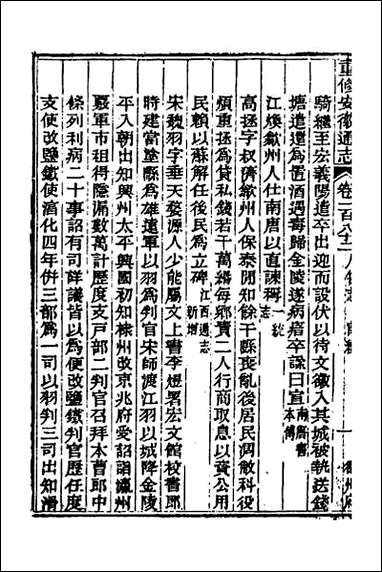 重修安徽通志 卷一百八十二 人物志
騎繼至宏義陽遣卒出迎而設伏以待文徽入其城被執送錢
塘遣還為置酒遇毒歸金陵遂病瘖卒謚曰宣 南唐書本傳
江煥歙州人仕南唐以直諫稱 一統志
高拯字叔濟歙州人保泰間知餘干縣喪亂後居民凋敝科役
煩重拯為貸私錢若干萬緡每鄉賣二人行商取息以資公用
民賴以蘇解任後民為立碑 江西通志 新增
宋魏羽字垂天婺源人少能屬文上書李煜署宏文館校書郎
時建當塗縣為雄遠軍以羽為判官宋師渡江羽以城降金陵
平入朝出知興州太平興國初知棣州改京兆府受詔詣瀛州
覈軍市租得隱漏數萬計歷度支戶部二判官召拜本曹郎中
條列利病二十事詔有司詳議皆以為便改鹽鐵判官歷任度
支使改鹽鐵使淳化四年併三部為一司以羽判三司出知滑